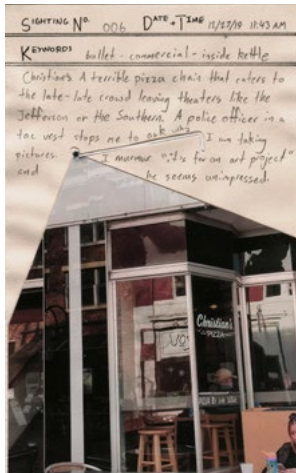 SIGHTING NO. 006 DATE + TIME 12/27/19 11:43 AM
KEYWORDS bullet - commercial - inside kettle
Christian's A terrible pizza chain that caters to
the late-late crowd leaving theaters like the
Jefferson or the Southern. A police officer in a
tac vest stops me to ask why I am taking
pictures. I murmur "it's for an art project"
and he seems unimpressed.
Christian's
PIZZA